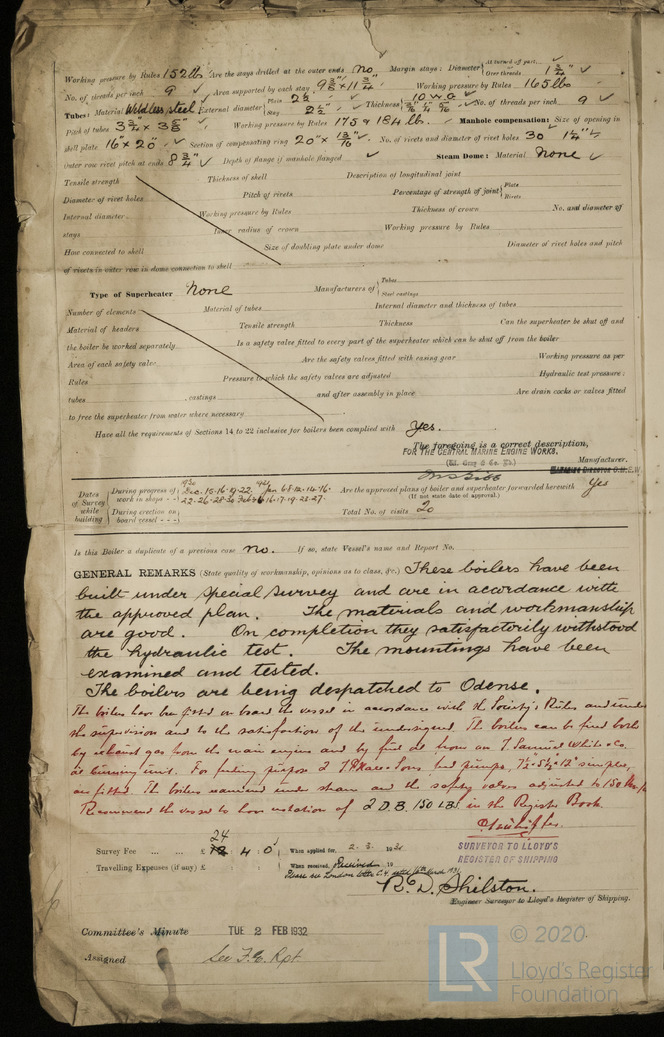 Working pressure by Rules 152 lb Are the stays drilled at the outer ends no Margin stays: Diameter { At turned off part, Over threads 1 3/4" ✓
No. of threads per inch 9 ✓ Area supported by each stay 9 3/8" × 11 3/4" Working pressure by Rules 165 lbs
Tubes: Material Weldless steel External diameter { Plain 2 1/2 Stay 2 1/2" ✓ Thickness { 10 W.G ✓ No. of threads per inch 9 ✓
Pitch of tubes 3 3/4 × 3 5/8" ✓ Working pressure by Rules 175 & 184 lb. ✓ Manhole compensation: Size of opening in
shell plate 16" × 20" ✓ Section of compensating ring 20" × 13/16" ✓ No. of rivets and diameter of rivet holes 30 1 1/4" ✓
Outer row rivet pitch at ends 8 3/4" ✓ Depth of flange if manhole flanged ✓ Steam Dome: Material None ✓
Tensile strength Thickness of shell Description of longitudinal joint
Diameter of rivet holes Pitch of rivets Percentage of strength of joint { Plate Rivets
Internal diameter Working pressure by Rules Thickness of crown No. and diameter of
stays Inner radius of crown Working pressure by Rules
How connected to shell Size of doubling plate under dome Diameter of rivet holes and pitch
of rivets in outer row in dome connection to shell
Type of Superheater None Manufacturers of { Tubes Steel castings
Number of elements Material of tubes Internal diameter and thickness of tubes
Material of headers Tensile strength Thickness Can the superheater be shut off and
the boiler be worked separately Is a safety valve fitted to every part of the superheater which can be shut off from the boiler
Area of each safety valve Are the safety valves fitted with easing gear Working pressure as per
Rules Pressure to which the safety valves are adjusted Hydraulic test pressure:
tubes , castings and after assembly in place Are drain cocks or valves fitted
to free the superheater from water where necessary
Have all the requirements of Sections 14 to 22 inclusive for boilers been complied with Yes.
The foregoing is a correct description,
FOR THE CENTRAL MARINE ENGINE WORKS.
(Wm. Gray & Co. Ltd.) Manufacturer.
MANAGING DIRECTOR C.M.E.W.
Dates of Survey while building { During progress of work in shops - - 1930 Dec. 10-16-19-22. 1931 Jan 6-8-12-14-16- Are the approved plans of boiler and superheater forwarded herewith Yes
(If not state date of approval.)
During erection on board vessel - - - Total No. of visits 20
Is this Boiler a duplicate of a previous case no. If so, state Vessel's name and Report No.
GENERAL REMARKS (State quality of workmanship, opinions as to class, &c.) These boilers have been
built under special survey and are in accordance with
the approved plan. The materials and workmanship
are good. On completion they satisfactorily withstood
the hydraulic test. The mountings have been
examined and tested.
The boilers are being despatched to Odense.
The boilers have been fitted on board the vessel in accordance with the Society's Rules and under
the supervision and to the satisfaction of the undersigned. The boilers can be fired both
by exhaust gas from the main engine and by fired oil from an J. Samuel White & Co.
oil burning unit. For feeding purpose 2 feed pumps, 7 1/2" × 5 1/2" × 12" simplex,
are fitted. The boilers examined under steam and the safety valves adjusted to 150 lbs
Recommend the vessel to have notation of 2 D.B. 150 LB. in the Register Book.
SURVEYOR TO LLOYD'S
REGISTER OF SHIPPING
Survey Fee ... ... £ 24 : 4 : 0 When applied for, 2. 3. 1931
Travelling Expenses (if any) £ : : When received, Received 19
R. D. Shilston.
Engineer Surveyor to Lloyd's Register of Shipping.
Committee's Minute TUE 2 FEB 1932
Assigned See F.E. Rpt.
LR © 2020
Lloyd's Register
Foundation